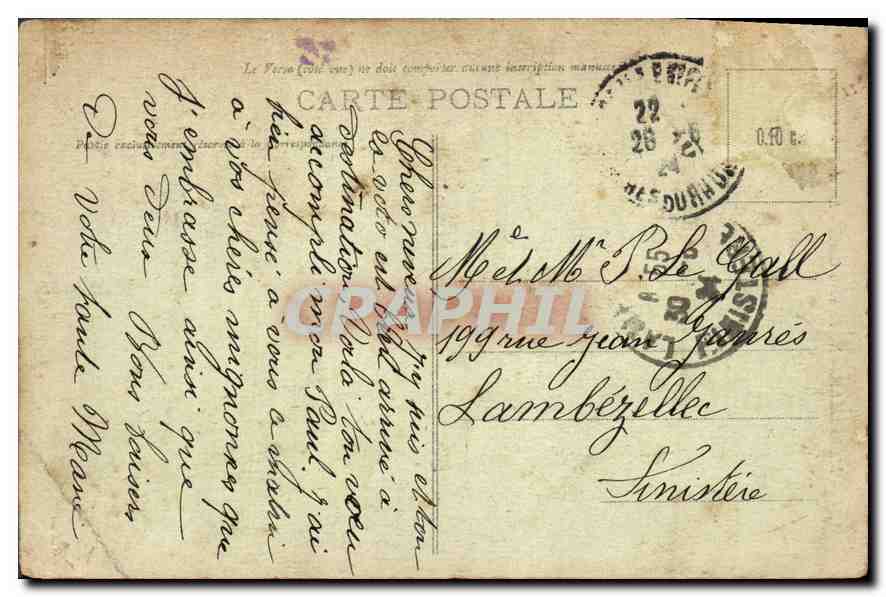 Le Verso (côté vue) ne doit comporter aucune inscription
CARTE POSTALE
Partie exclusivement réservée à la correspondance
0.10 c.
Chers neveux j'y suis et ton
la veto est bel arrivé à
destination. Voilà ton vœu
accompli mon Paul. J'ai
bien pensé à vous ce matin
à vos chères mignonnes que
J'embrasse ainsi que
vous deux Bons baisers
De votre tante Marie
Me et Mr P Le Gall
199 rue Jean Jaurés
Lambézellec
Finistére
22
26
24
55
CPAPHIL